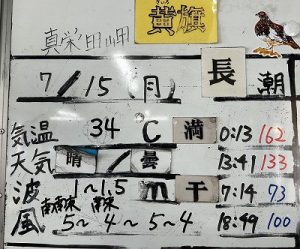 黄旗
真栄田岬
7/15月 長潮
気温 34℃ 満 0:13 162
天気 晴/曇 13:41 133
波 1~1.5m 干 7:14 73
風 5~4~5~4 18:49 100